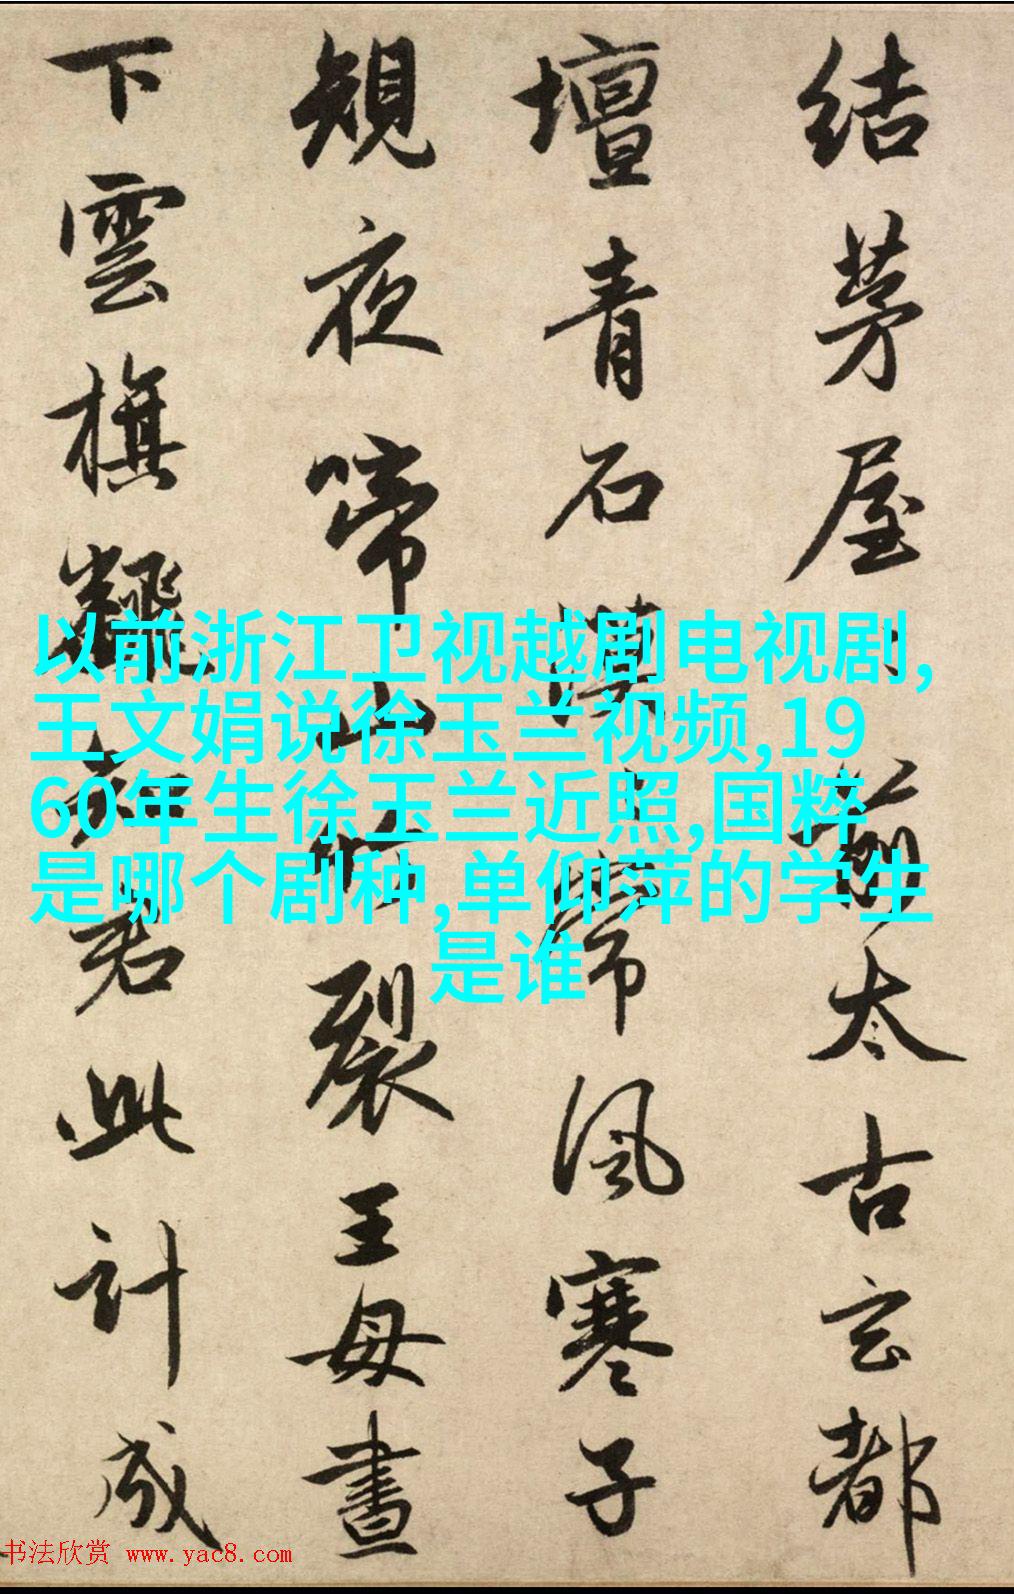 结茅屋前太古玄都
壇青石漠漠常風寒子
規夜啼山竹裂王母晝
下雲旗翻知君此計成
以前浙江卫视越剧电视剧,
王文娟说徐玉兰视频,19
60年生徐玉兰近照,国粹
是哪个剧种,单仰萍的学生
是谁
书法欣赏 www.yac8.com